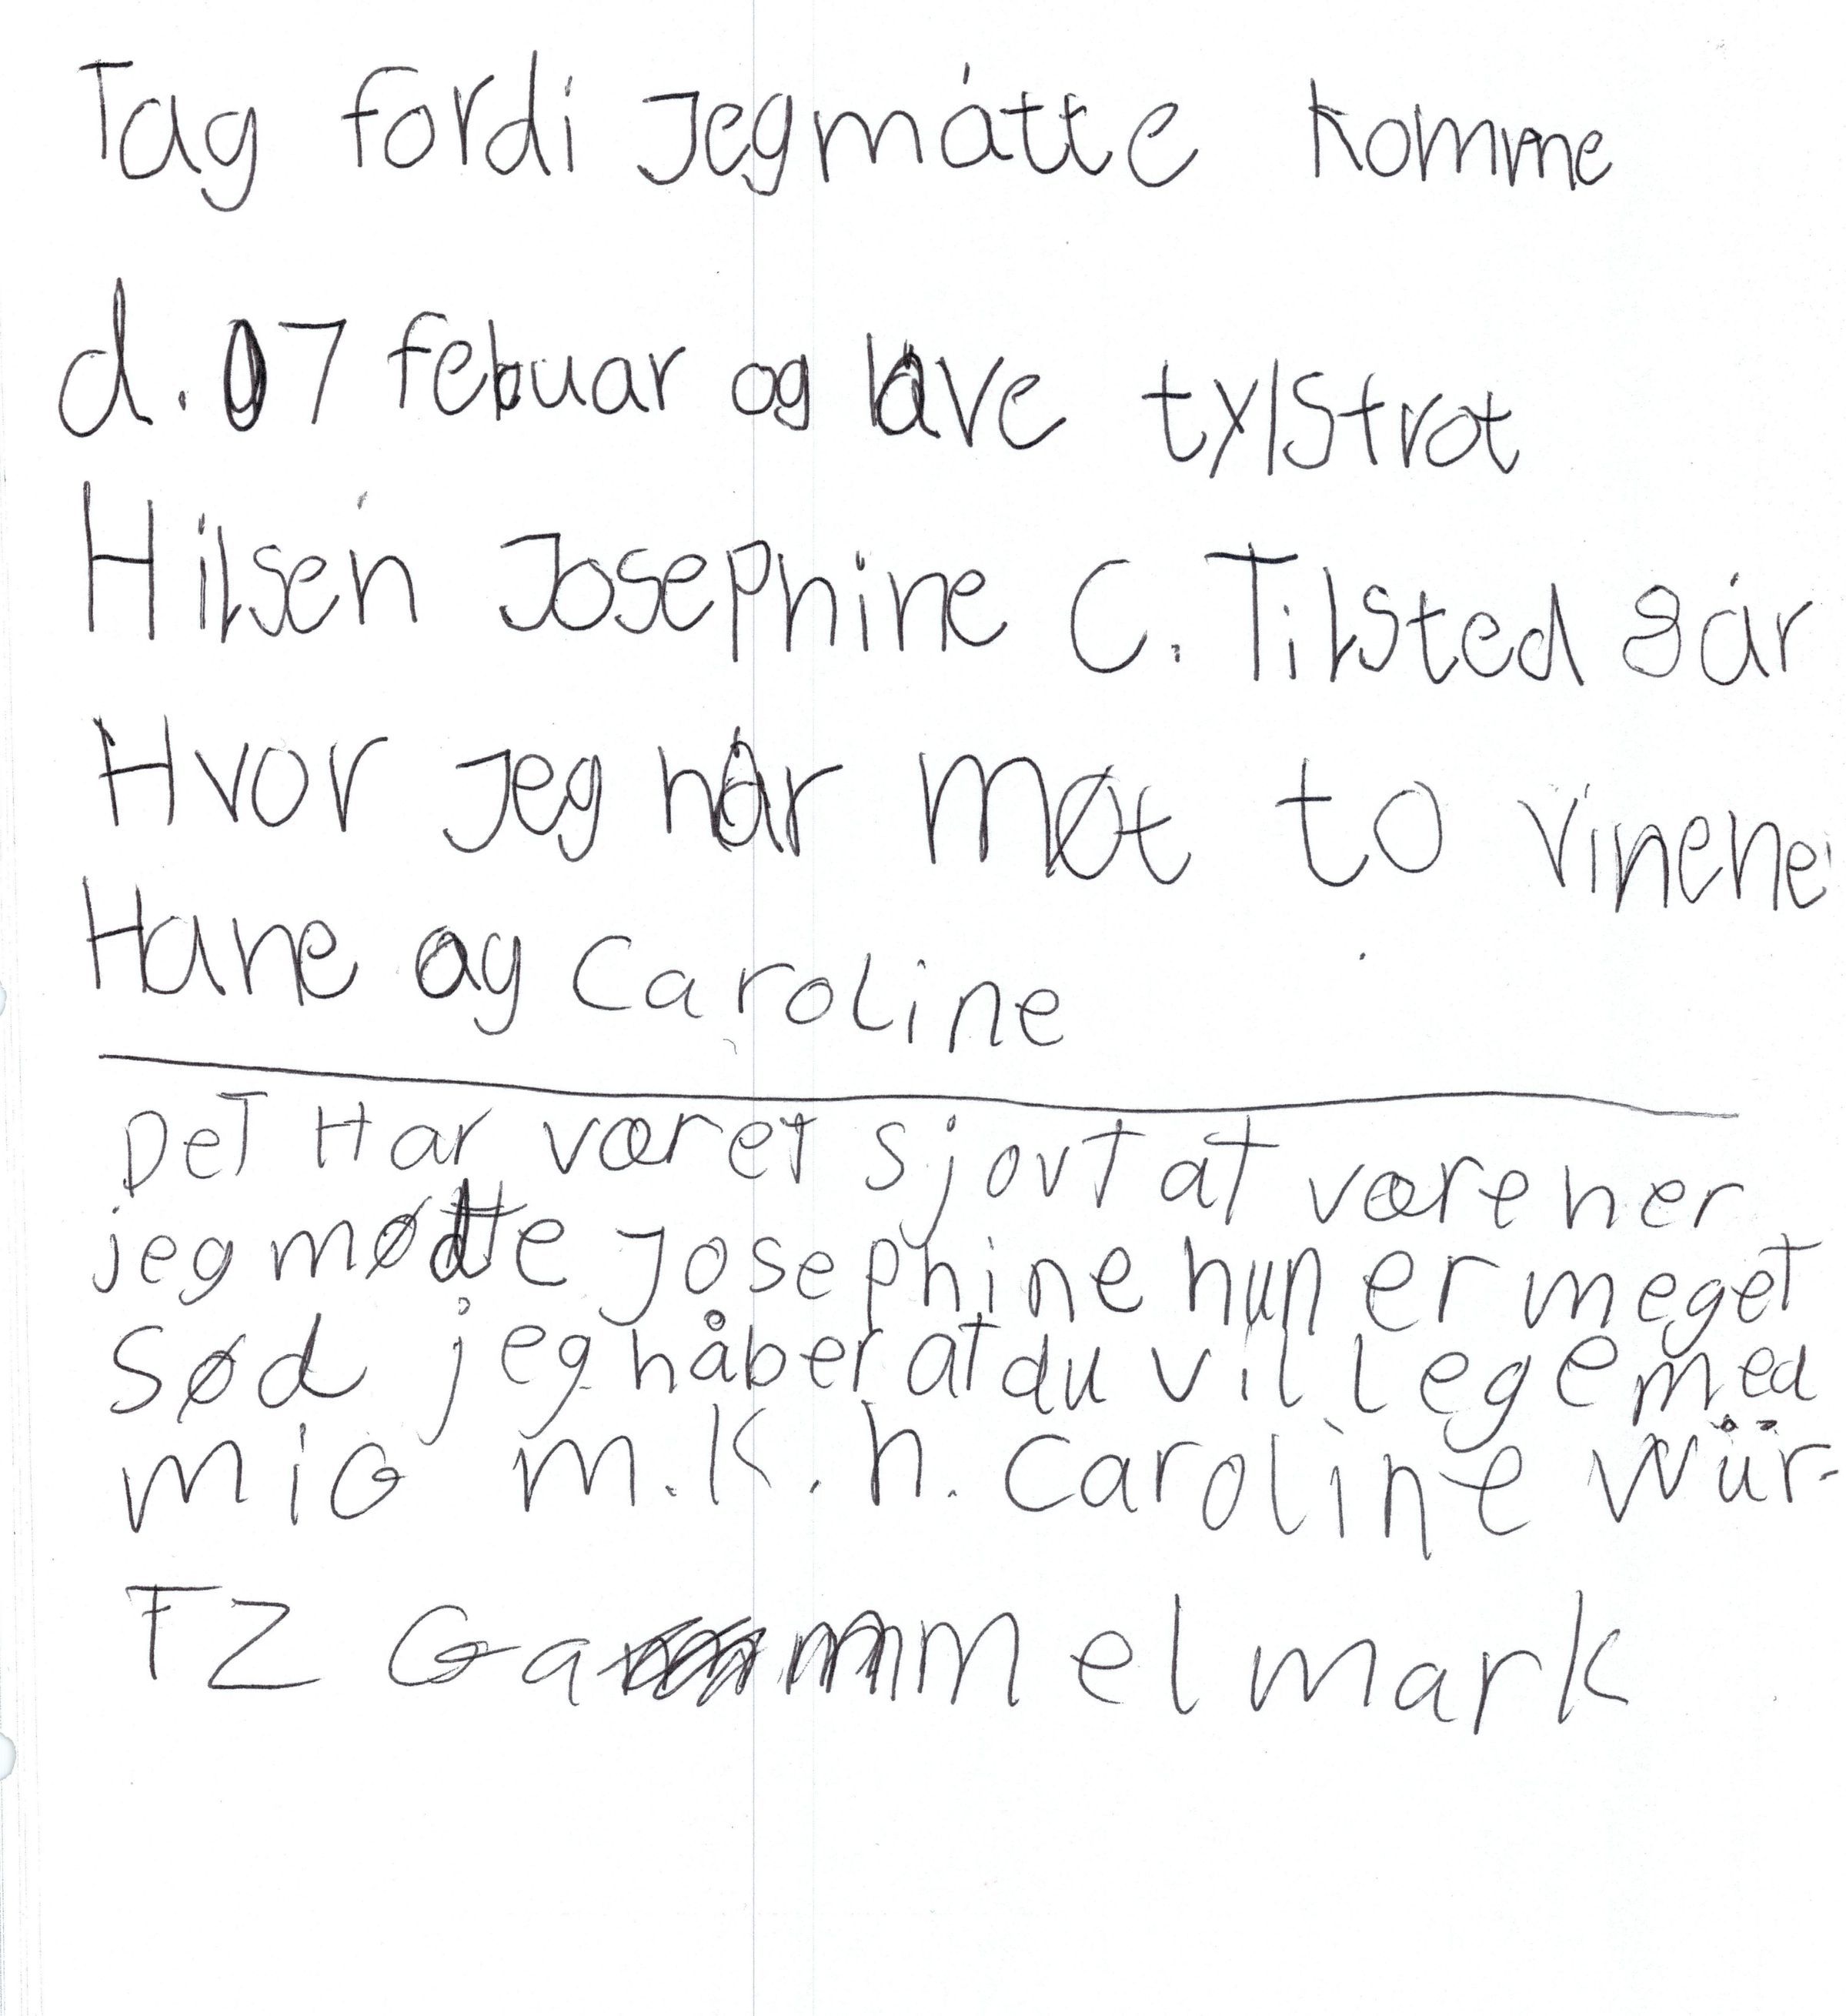 Tag fordi jeg måtte komme
d. 07 febuar og lave tylstrot
Hilsen Josephine C. Tilsted 8 år
Hvor jeg har møt to vinene
Hane og Caroline
Det Har været sjovt at være her
jeg mødte Josephine hun er meget
sød jeg håber at du vil lege med
miG m.k.h. Caroline Wür-
TZ Gammelmark